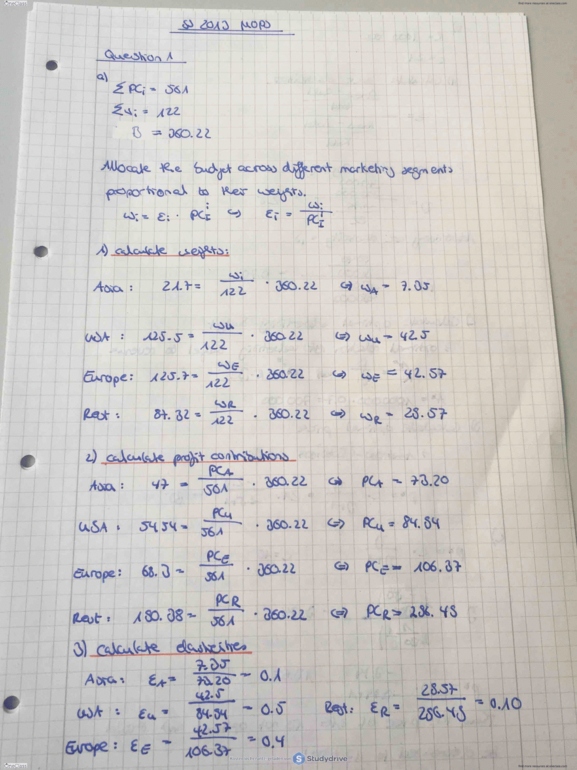 SS 2019 MOPS
Question 1
a)
∑PCi = 561
∑wi = 122
B = 360.22
Allocate the budget across different marketing segments
proportional to their weights.
wi = εi · PCi ⇔ εi = wi / PCi
1) calculate weights:
Asia: 21.7 = wi / 122 · 360.22 ⇔ wA = 7.35
USA: 125.5 = wu / 122 · 360.22 ⇔ wu = 42.5
Europe: 125.7 = wE / 122 · 360.22 ⇔ wE = 42.57
Rest: 87.32 = wR / 122 · 360.22 ⇔ wR = 29.57
2) calculate profit contributions
Asia: 47 = PCA / 561 · 360.22 ⇔ PCA = 73.20
USA: 54.54 = PCu / 561 · 360.22 ⇔ PCu = 84.94
Europe: 68.3 = PCE / 561 · 360.22 ⇔ PCE = 106.37
Rest: 190.38 = PCR / 561 · 360.22 ⇔ PCR = 296.49
3) calculate elasticities
Asia: εA = 7.35 / 73.20 = 0.1
USA: εu = 42.5 / 84.94 = 0.5 Rest: εR = 29.57 / 296.49 = 0.10
Europe: εE = 42.57 / 106.37 = 0.4
Studydrive